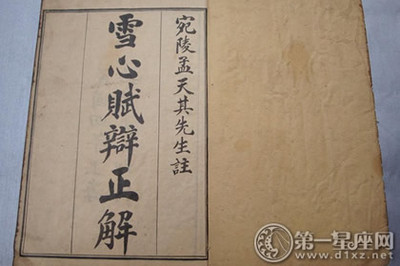 宛陵孟天其先生註
雪心賦辯正解
第一星座网
www.d1xz.net